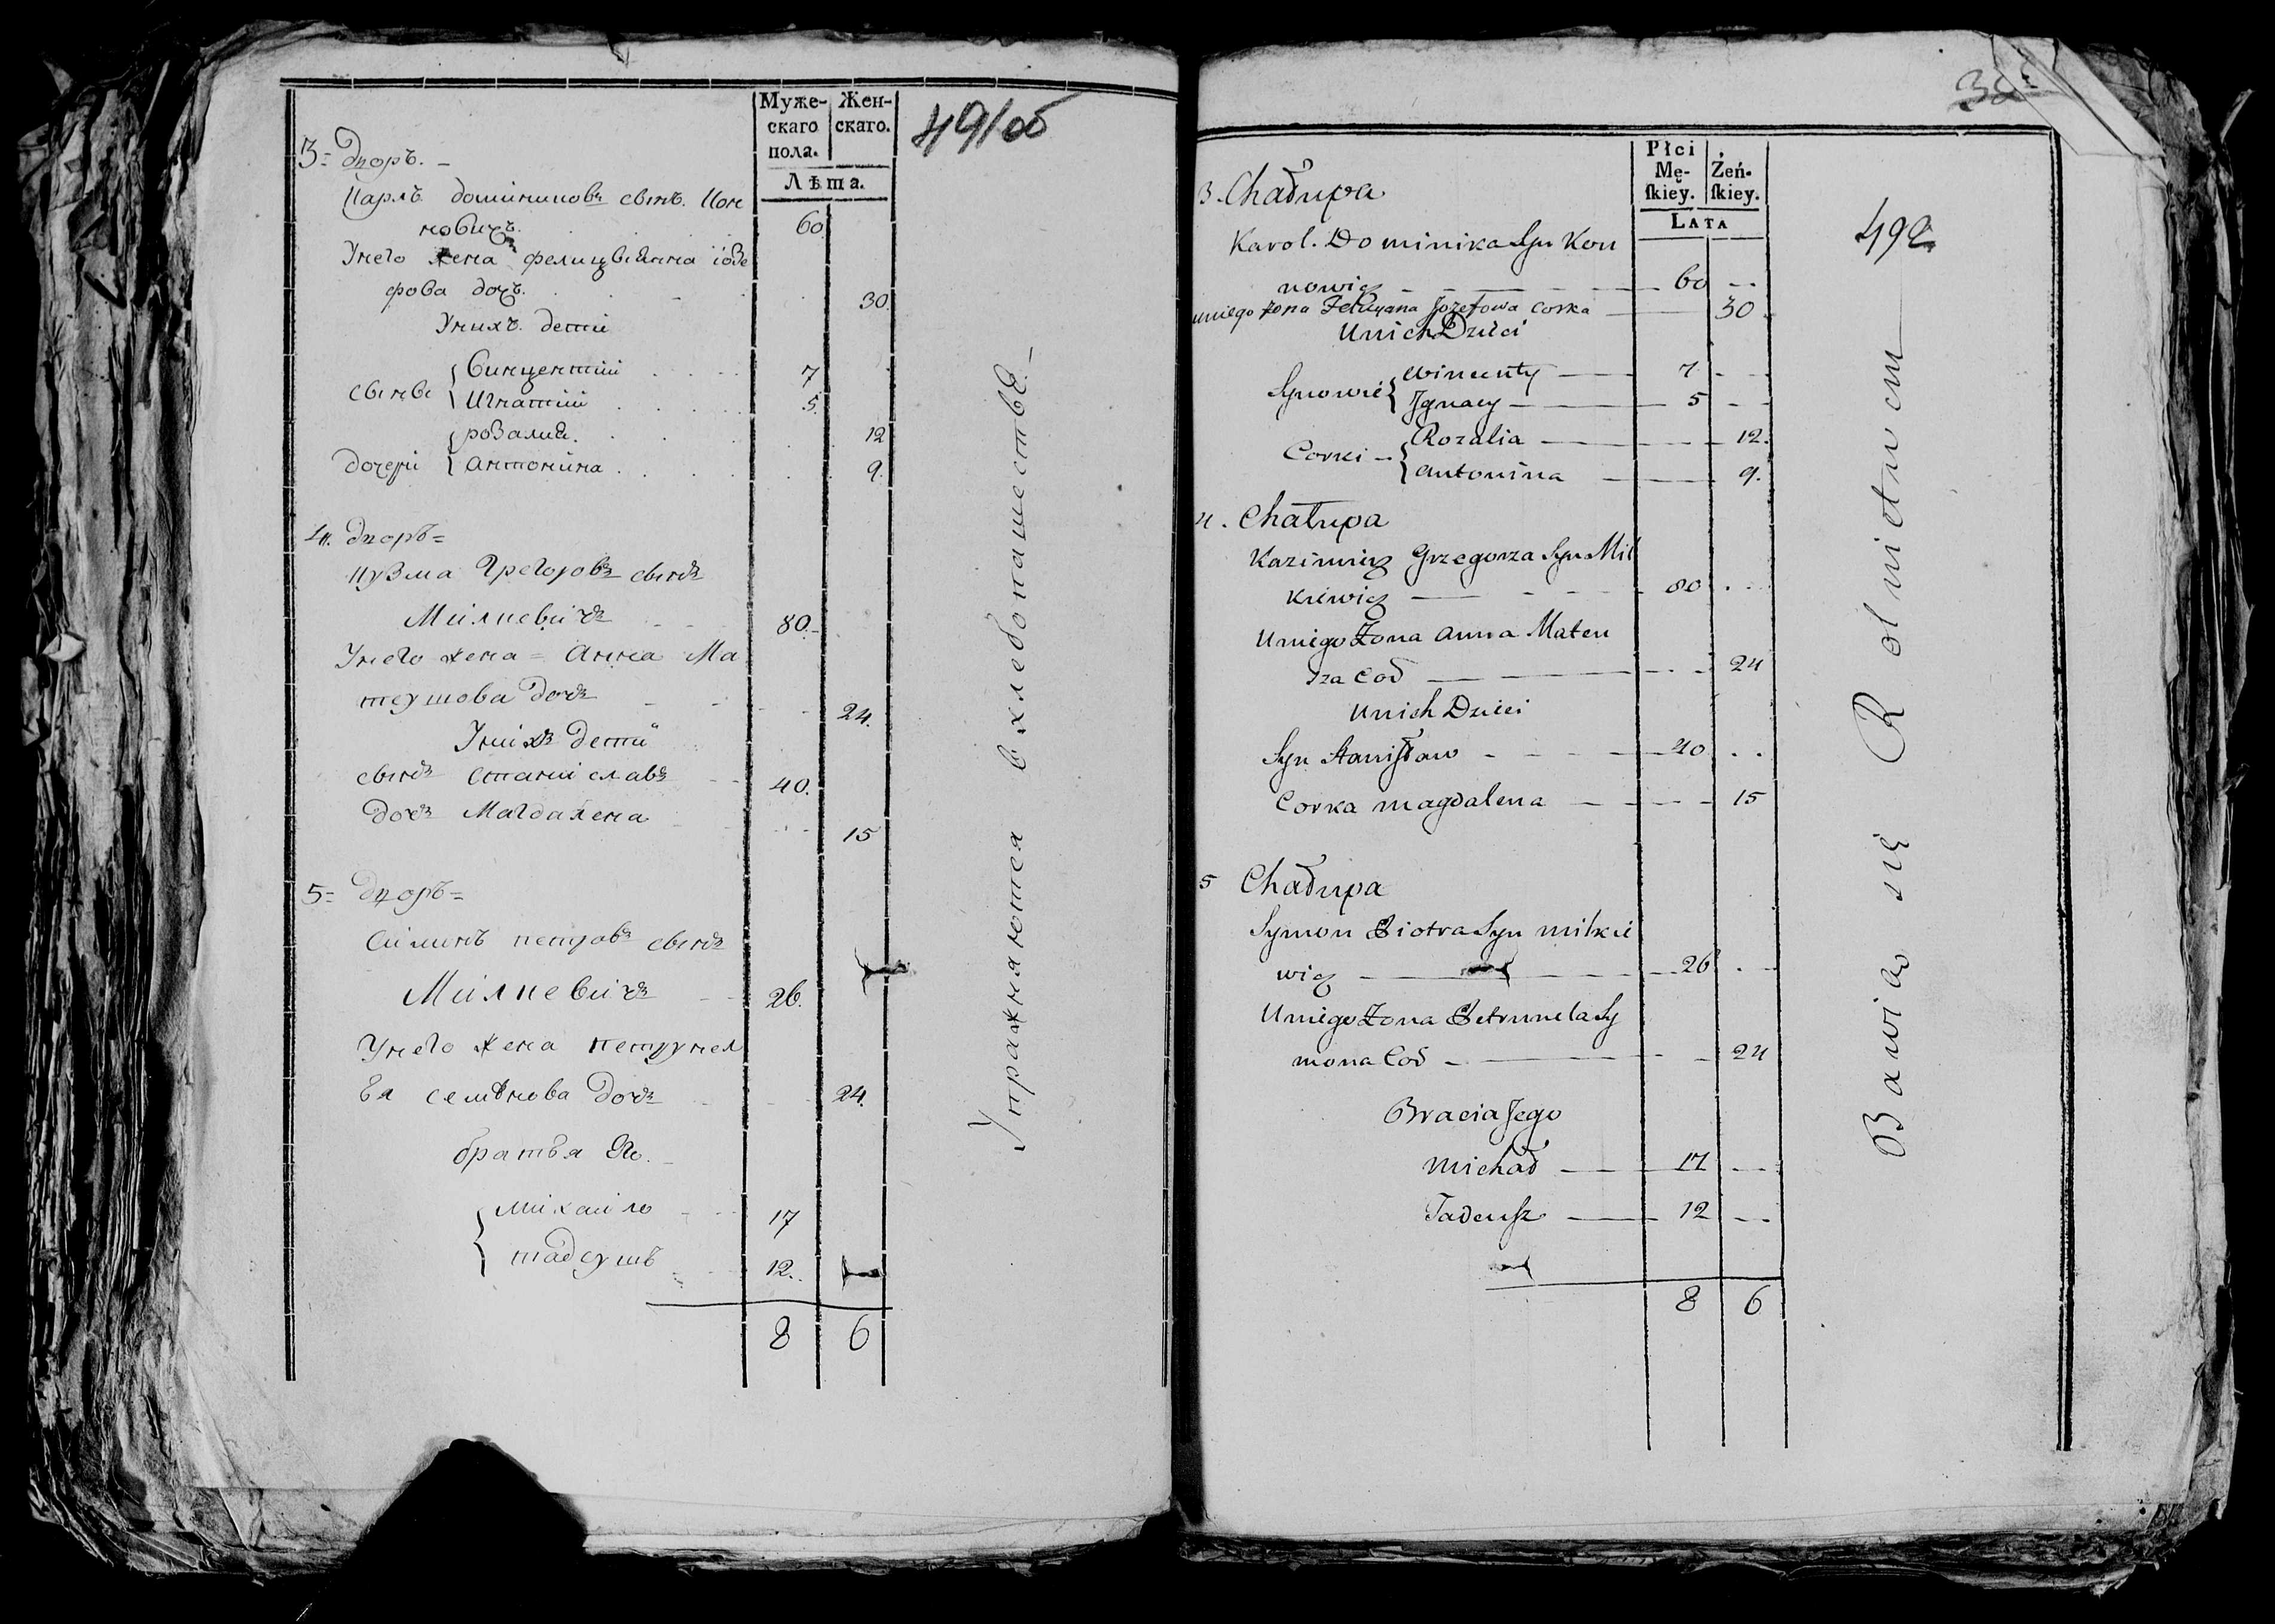 Муже-
скаго
пола.
Жен-
скаго.
Лѣта.
491об
3= дворъ. –
Карлъ доминиковъ сынъ. Кон
новичъ. 60
Унего жена фелицыянна іозе
фова дочъ. 30.
Унихъ. дети
сынве { Винцентіи 7
Игнатіи 5.
дочери { розалия. 12
антонина. 9.
4. дворъ=
кузма Грегоровъ сынъ
Милкевичъ 80.
Унего жена = Анна Ма
теушова дочъ 24.
Унихъ дети
сынъ Станиславъ 40.
дочъ Магдалена 15
5= дворъ=
Симонъ петровъ сынъ
Милкевичъ 26.
Унего жена петрунел
ья семѣнова дочъ 24.
братья Его. –
{ михаило 17
тадеушъ 12.
8 6
Упражняются в хлебопашествѣ. –
Płci
Mę-
ſkiey.
Żeń-
ſkiey.
LATA
492
3. Chałupa
Karol. Dominika Syn Kon
nowicz 60
uniego zona Felicyana Jozefowa corka 30
Unich Dzieci
Synowie { Wincenty 7
Jgnacy 5
Corki { Rozalia 12.
Antonina 9.
4. Chałupa
Kazimierz Grzegorza Syn Mil
kiewicz 80
Uniego Zona Anna Mateu
sza Cod 24
Unich Dzieci
Syn Stanisław 40
Corka Magdalena 15
5 Chałupa
Symon Piotra Syn Milkie
wicz 26
Uniego Zona Petrunela Sy
mona Cod 24
Bracia Jego
Michał 17
Tadeusz 12
8 6
Bawią się Rolnictwem